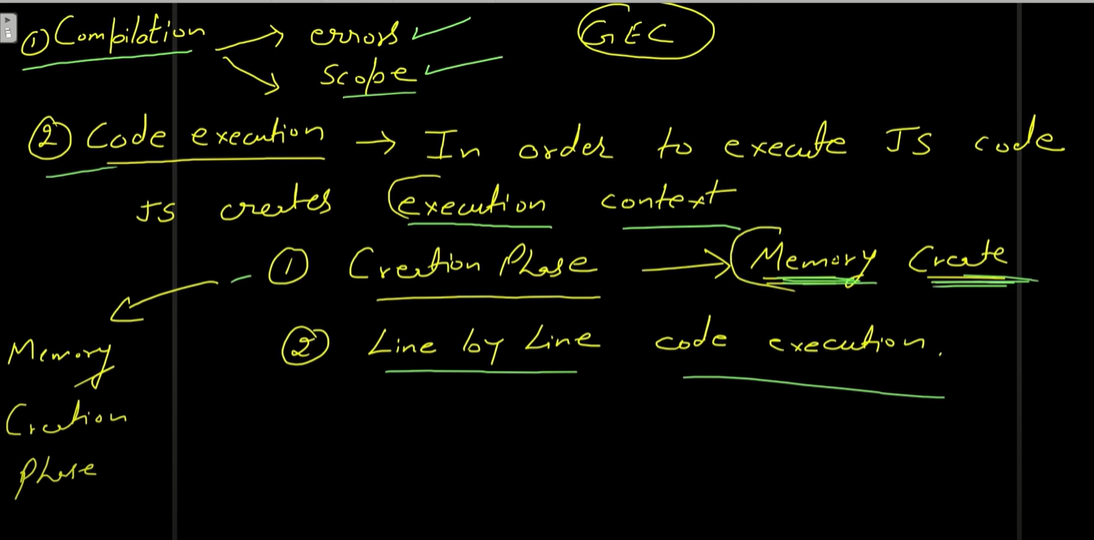 ① Compilation → errors GEC
→ scope
② Code execution → In order to execute JS code
JS creates execution context
① Creation Phase → Memory Create
② Line by Line code execution.
Memory
Creation
Phase